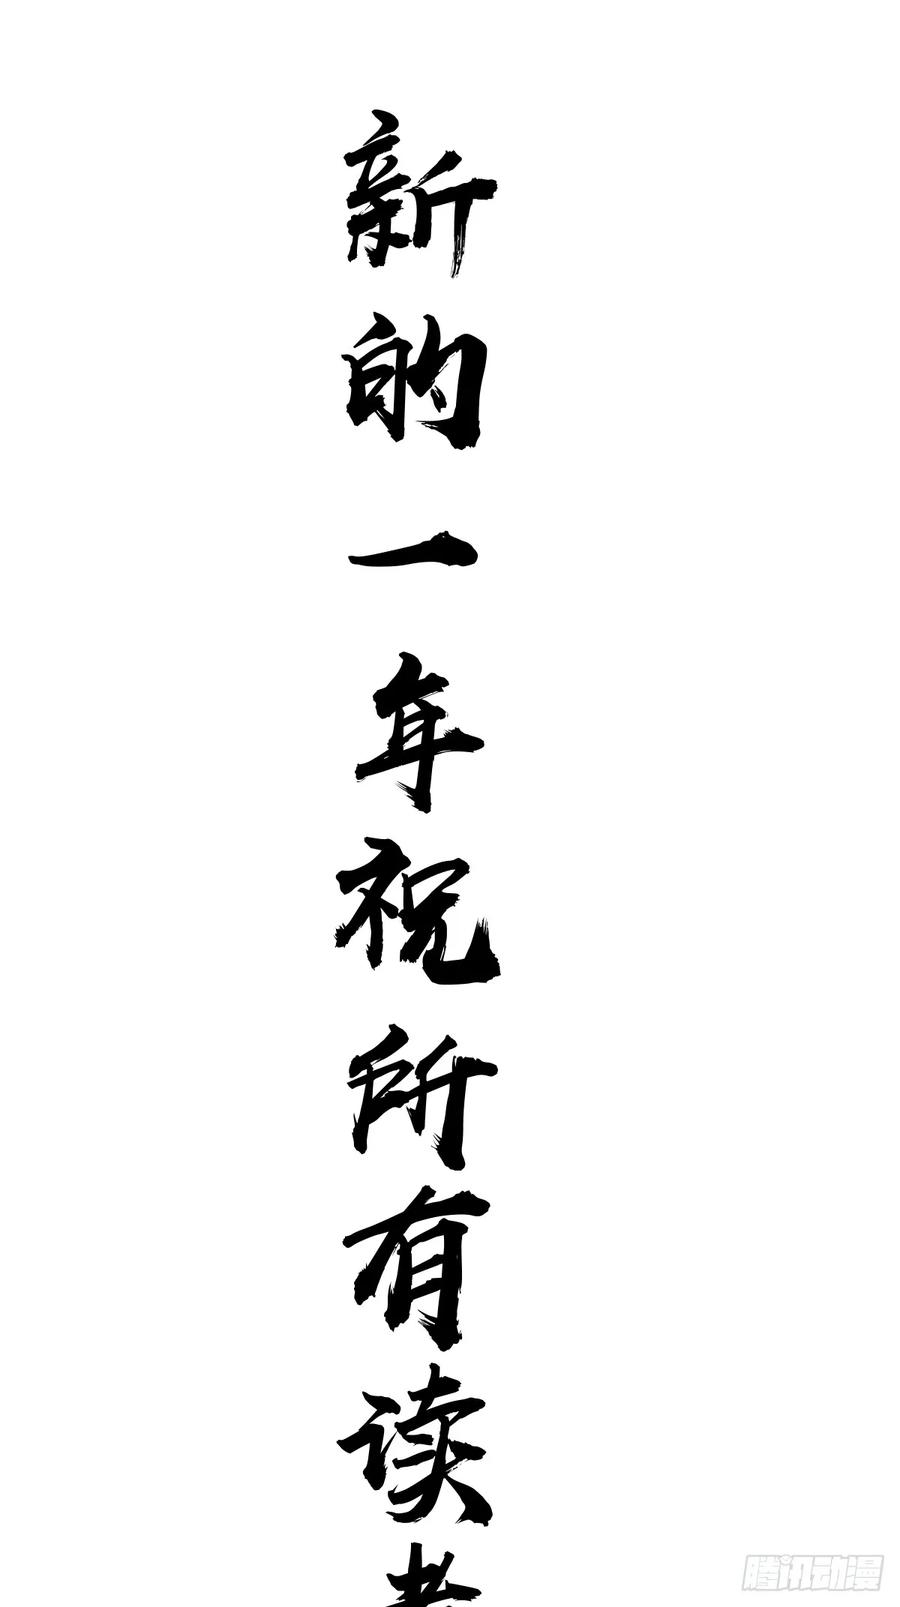 新的一年祝所有读者
腾讯动漫